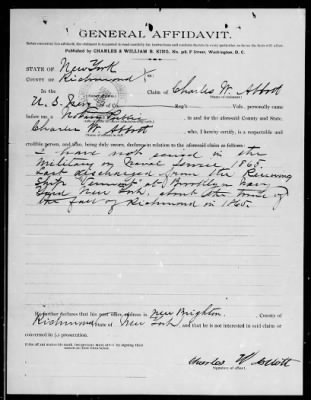 GENERAL AFFIDAVIT.
Published by CHARLES & WILLIAM B. KING, No. 918 F Street, Washington, D. C.
STATE OF New York
COUNTY OF Richmond
Claim of Charles W. Abbott
U. S. Navy Reg't Vols., personally came
before me, a Notary Public, in and for the aforesaid County and State,
Charles W. Abbott, who, I hereby certify, is a respectable and
credible person, and who, being duly sworn, declares in relation to the aforesaid claim as follows:
I have not served in the
Military or Naval Service since 1865.
Last discharged from the Receiving
Ship "Vermont" at Brooklyn Navy
Yard New York, about the time of
the fall of Richmond in 1865.
He further declares that his post office address is New Brighton, County of
Richmond State of New York, and that he is not interested in said claim or
concerned in its prosecution.
Charles W Abbott
Signature of affiant.